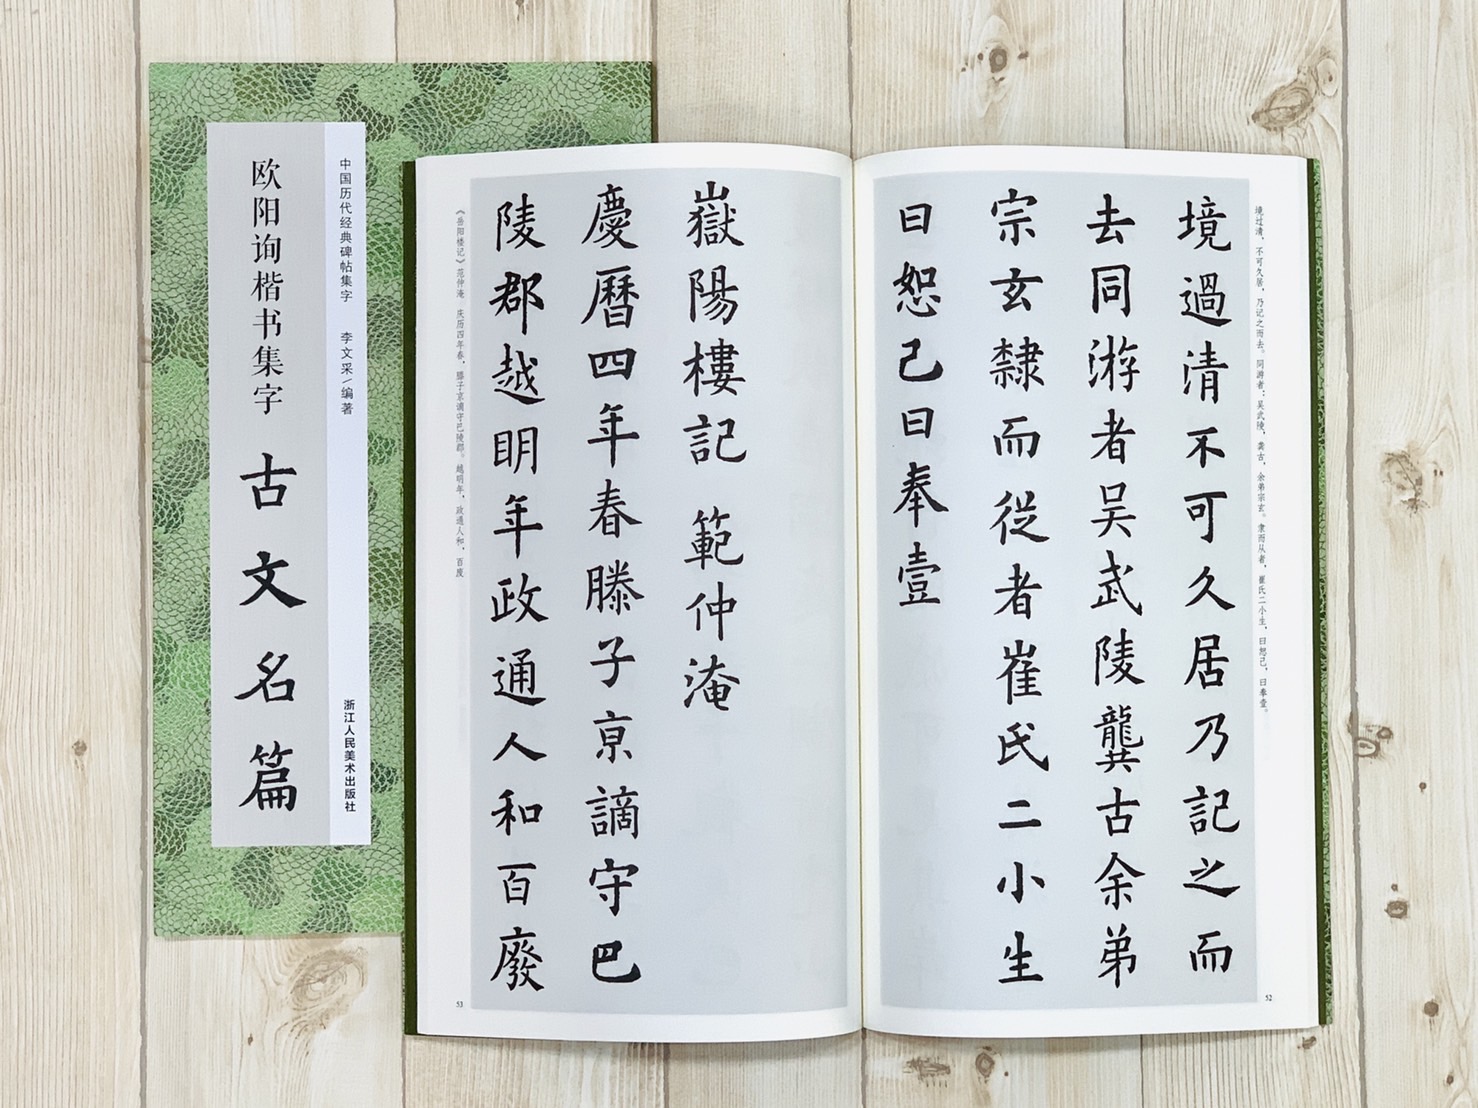 中国历代经典碑帖集字 李文采/编著 浙江人民美术出版社
欧阳询楷书集字 古文名篇
境过清，不可久居，乃记之而去。同游者：吴武陵，龚古，余弟宗玄。隶而从者，崔氏二小生，曰恕己，曰奉壹。
境過清不可久居乃記之而
去同游者吴武陵龔古余弟
宗玄隸而從者崔氏二小生
曰恕己曰奉壹
52
嶽陽樓記 範仲淹
慶曆四年春滕子亰謫守巴
陵郡越明年政通人和百廢
《岳阳楼记》范仲淹 庆历四年春，滕子京谪守巴陵郡。越明年，政通人和，百废
53